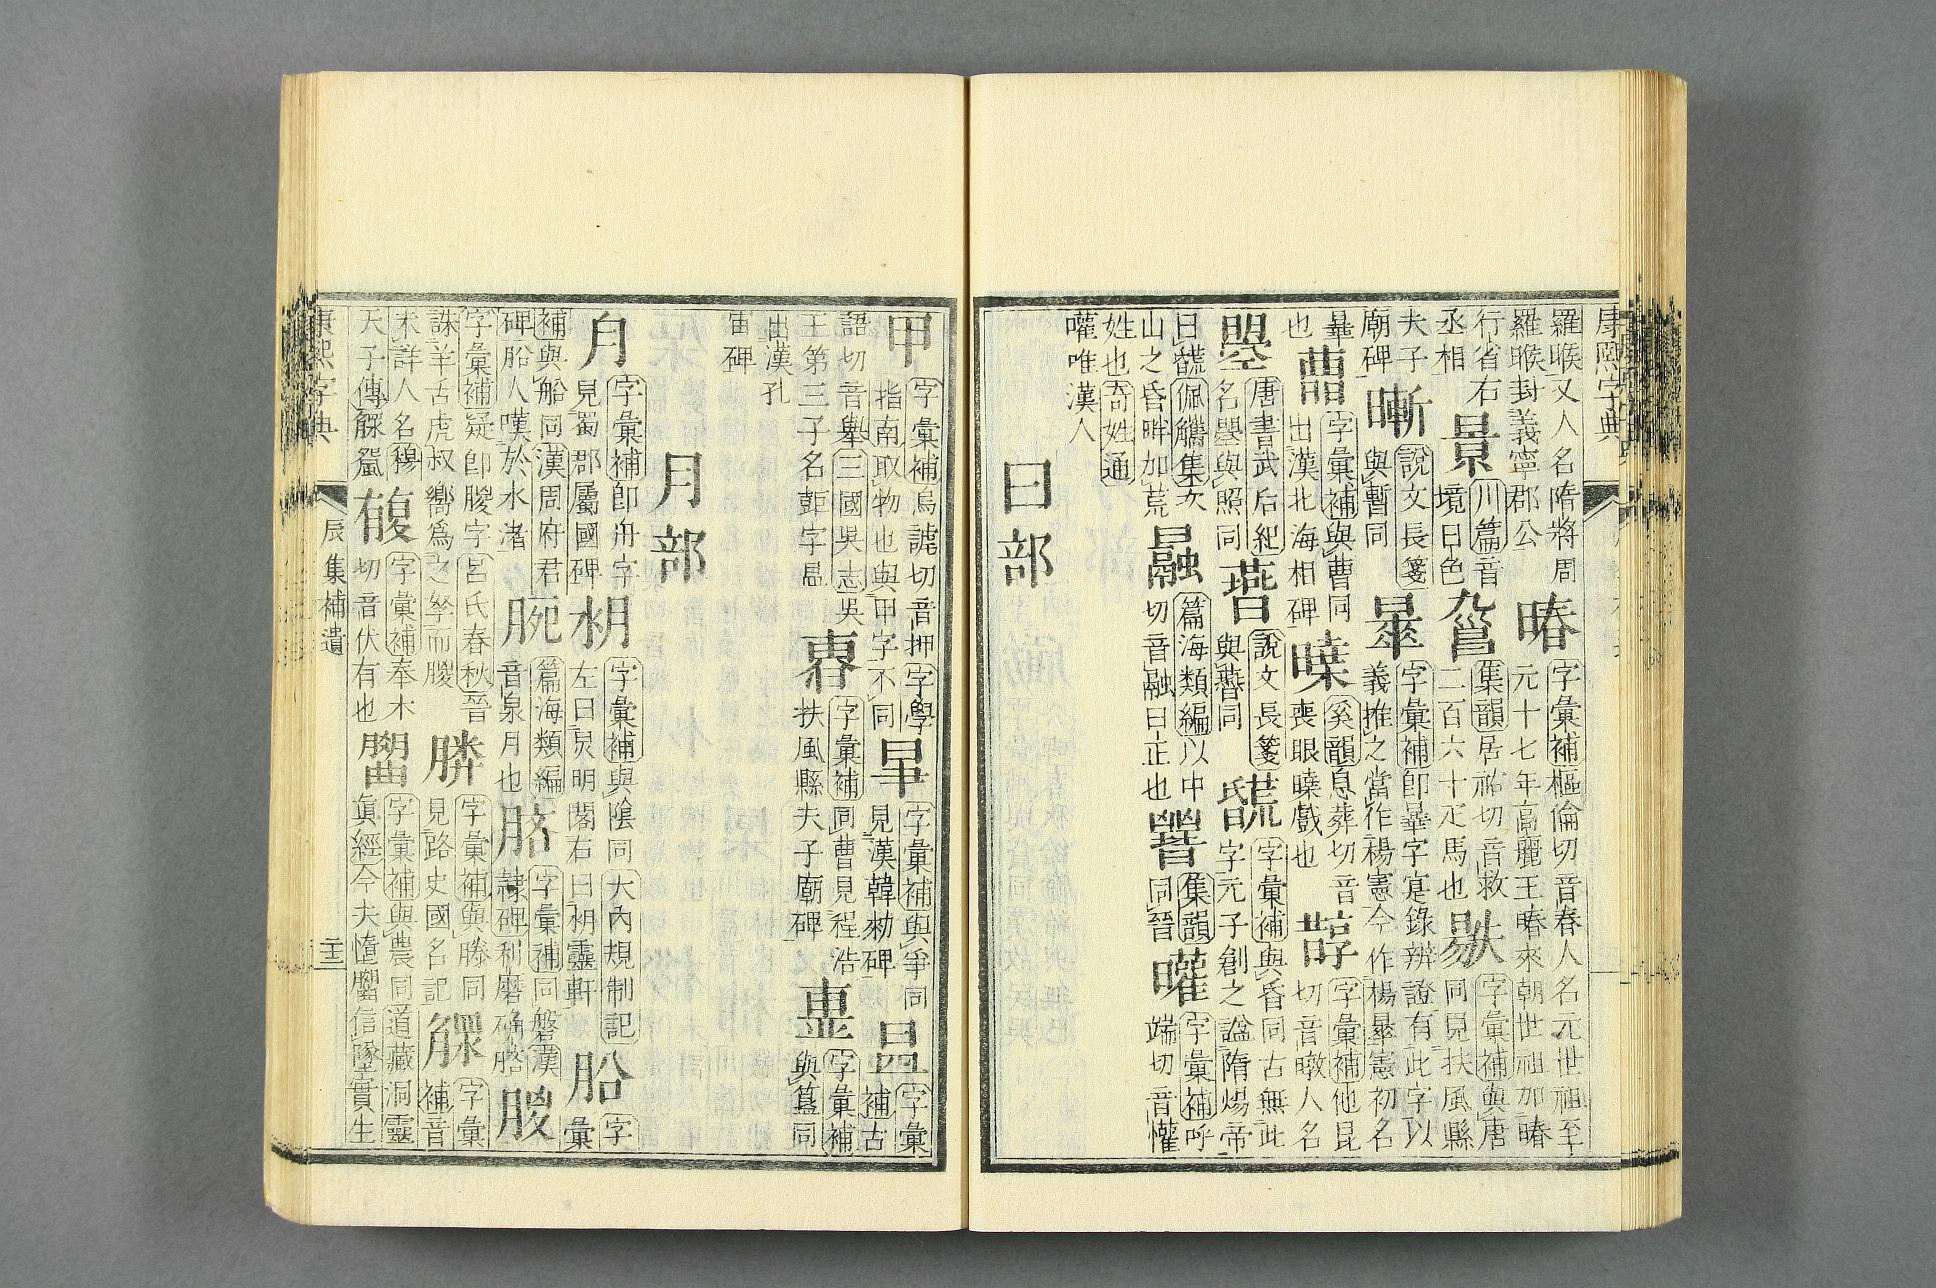 康熙字典
羅睺又人名隋將周
羅睺封義寧郡公
暙
字彙補樞倫切音春人名元世祖至
元十七年高麗王暙來朝世祖加暙
行省右
丞相
景
川篇音
境日色
集韻居祐切音救
二百六十疋馬也
字彙補與唐
同見扶風縣
夫子
廟碑
暫
說文長箋
與暫同
字彙補卽暴字寔錄辨證有此字以
義推之當作楊憲今作楊憲初名
也
曹
字彙補與曹同
出漢北海相碑
曉
奚韻息葬切音
喪眼曉戲也
字彙補他昆
切音暾人名
曌
唐書武后紀
名曌與照同
說文長箋
與替同
字彙補與昏同古無此
字元子創之諡隋煬帝
佩觿集次
山之昏畔加荒
篇海類編以中
切音融日正也
集韻
同晉
曤
字彙補呼
端切音懽
姓也奇姓通
嚾唯漢人
曰部
甲
字彙補烏謔切音押字學
指南取物也與甲字不同
字彙補與爭同
見漢韓勑碑
字彙
補古
語切音舉三國吳志吳
王第三子名壾字㬅
字彙補同曹見程浩
扶風縣夫子廟碑
字彙補
與簋同
出漢孔
宙碑
月部
字彙補卽舟字
見蜀郡屬國碑
字彙補與陰同大內規制記
左曰炅明閣右曰明靈軒
船
字彙
補與船同漢周府君
碑船人嘆於水渚
腕
篇海類編
音泉月也
字彙補同磐漢
隸碑利磨确
朘
字彙補疑卽朘字呂氏春秋晉
誅羊舌虎叔嚮爲之孥而朘
勝
字彙補與勝同
見路史國名記
字彙
補音
未詳人名穆
天子傳
字彙補奉木
切音伏有也
字彙補與農同道藏洞靈
眞經今夫惰農信墜實生
康熙字典
辰集補遺
二十三